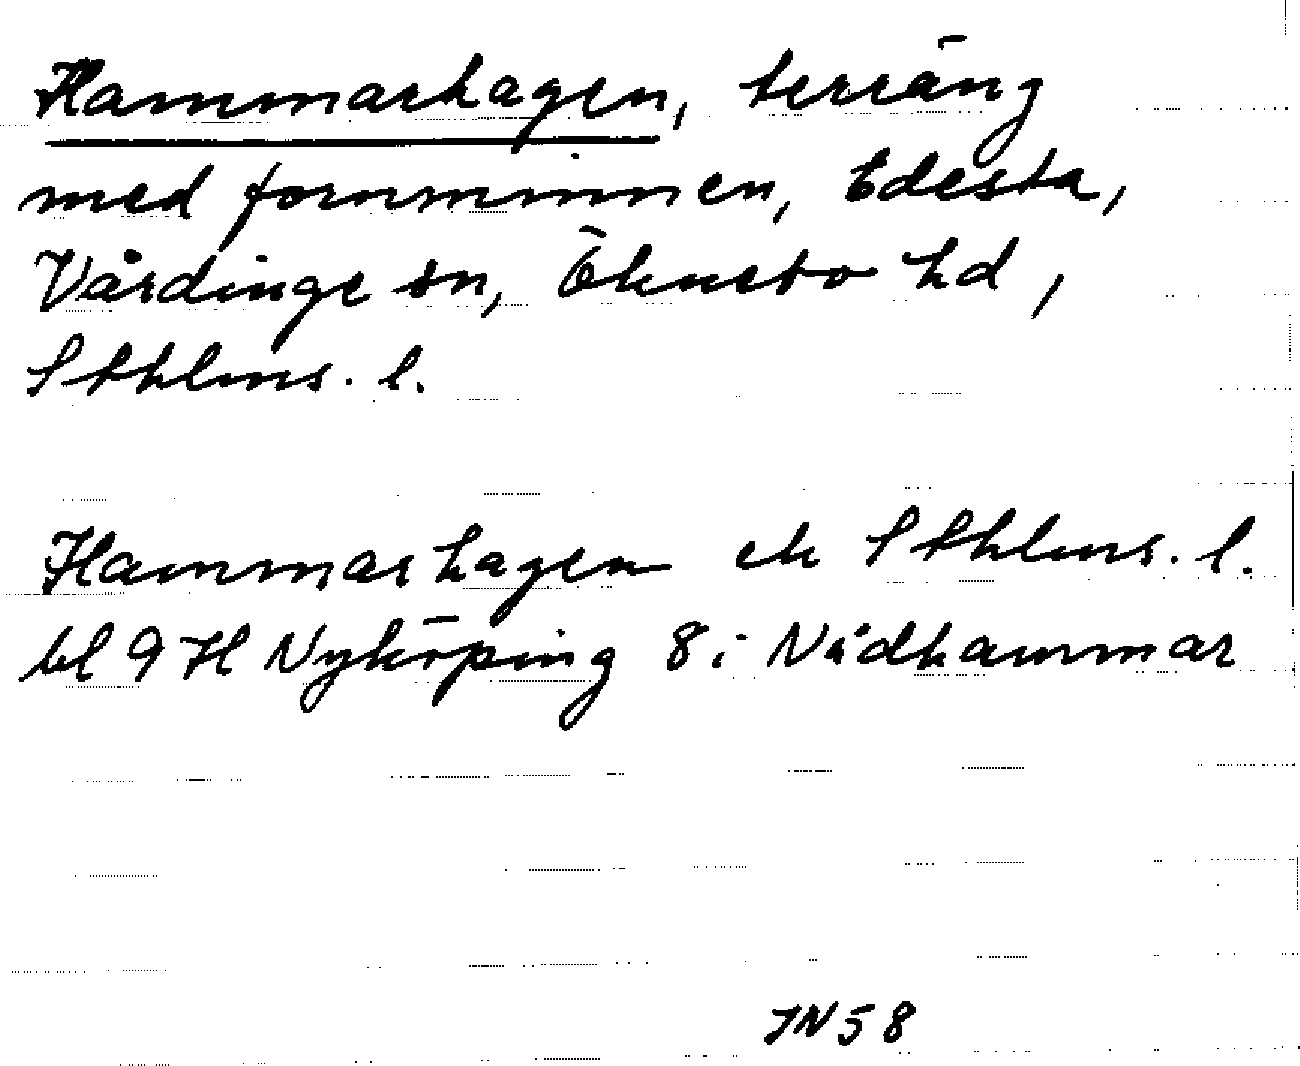 Hammarhagen, terräng
med fornminnen, Edesta,
Vårdinge sn, Öknebo hd,
Sthlms. l.
Hammarhagen ek Sthlms. l.
bl 9 H Nyköping 8 i Nådhammar
JN 58